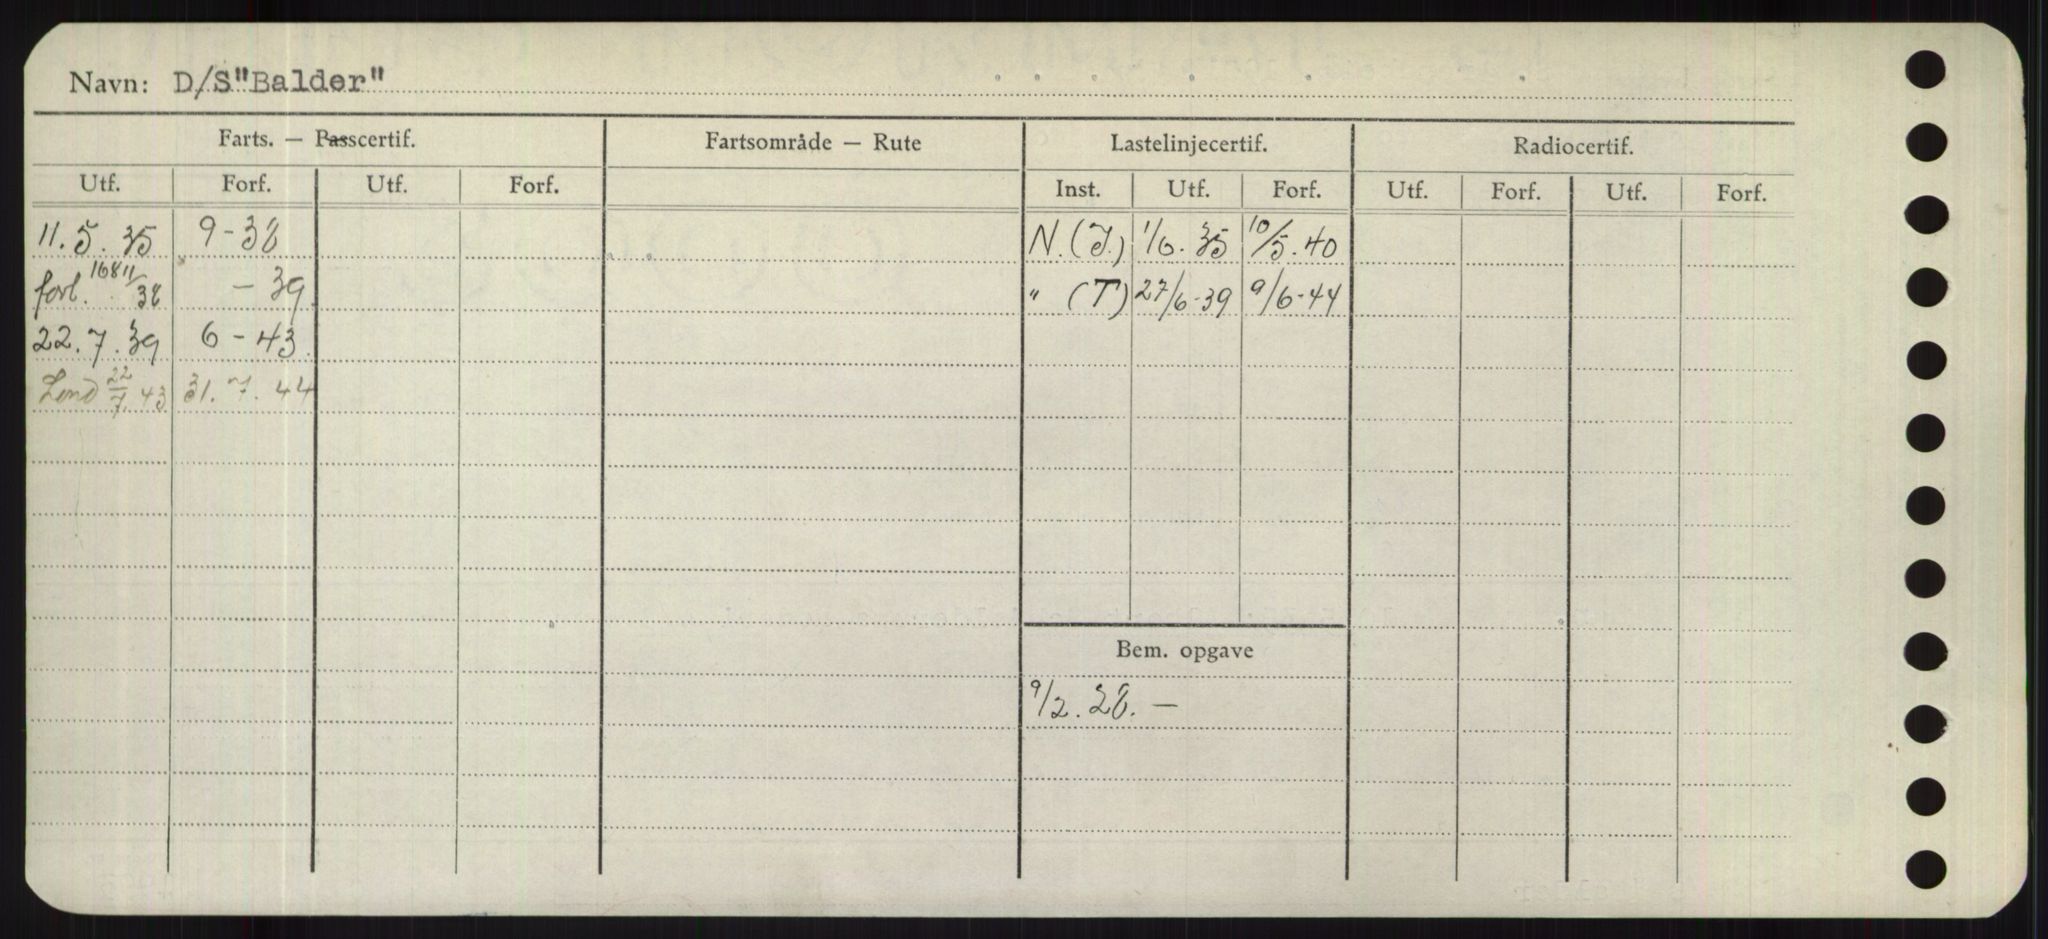 Navn: D/S"Balder"
Farts. — Passcertif. Fartsområde — Rute Lastelinjecertif. Radiocertif.
Utf. Forf. Utf. Forf. Inst. Utf. Forf. Utf. Forf. Utf. Forf.
11.5.35 9-38 N.(J.) 1/6.35 10/5.40
forl. 11/38 -39 " (T) 27/6-39 9/6-44
22.7.39 6-43
Lond 22/7.43 31.7.44
Bem. opgave
9/2.28.—